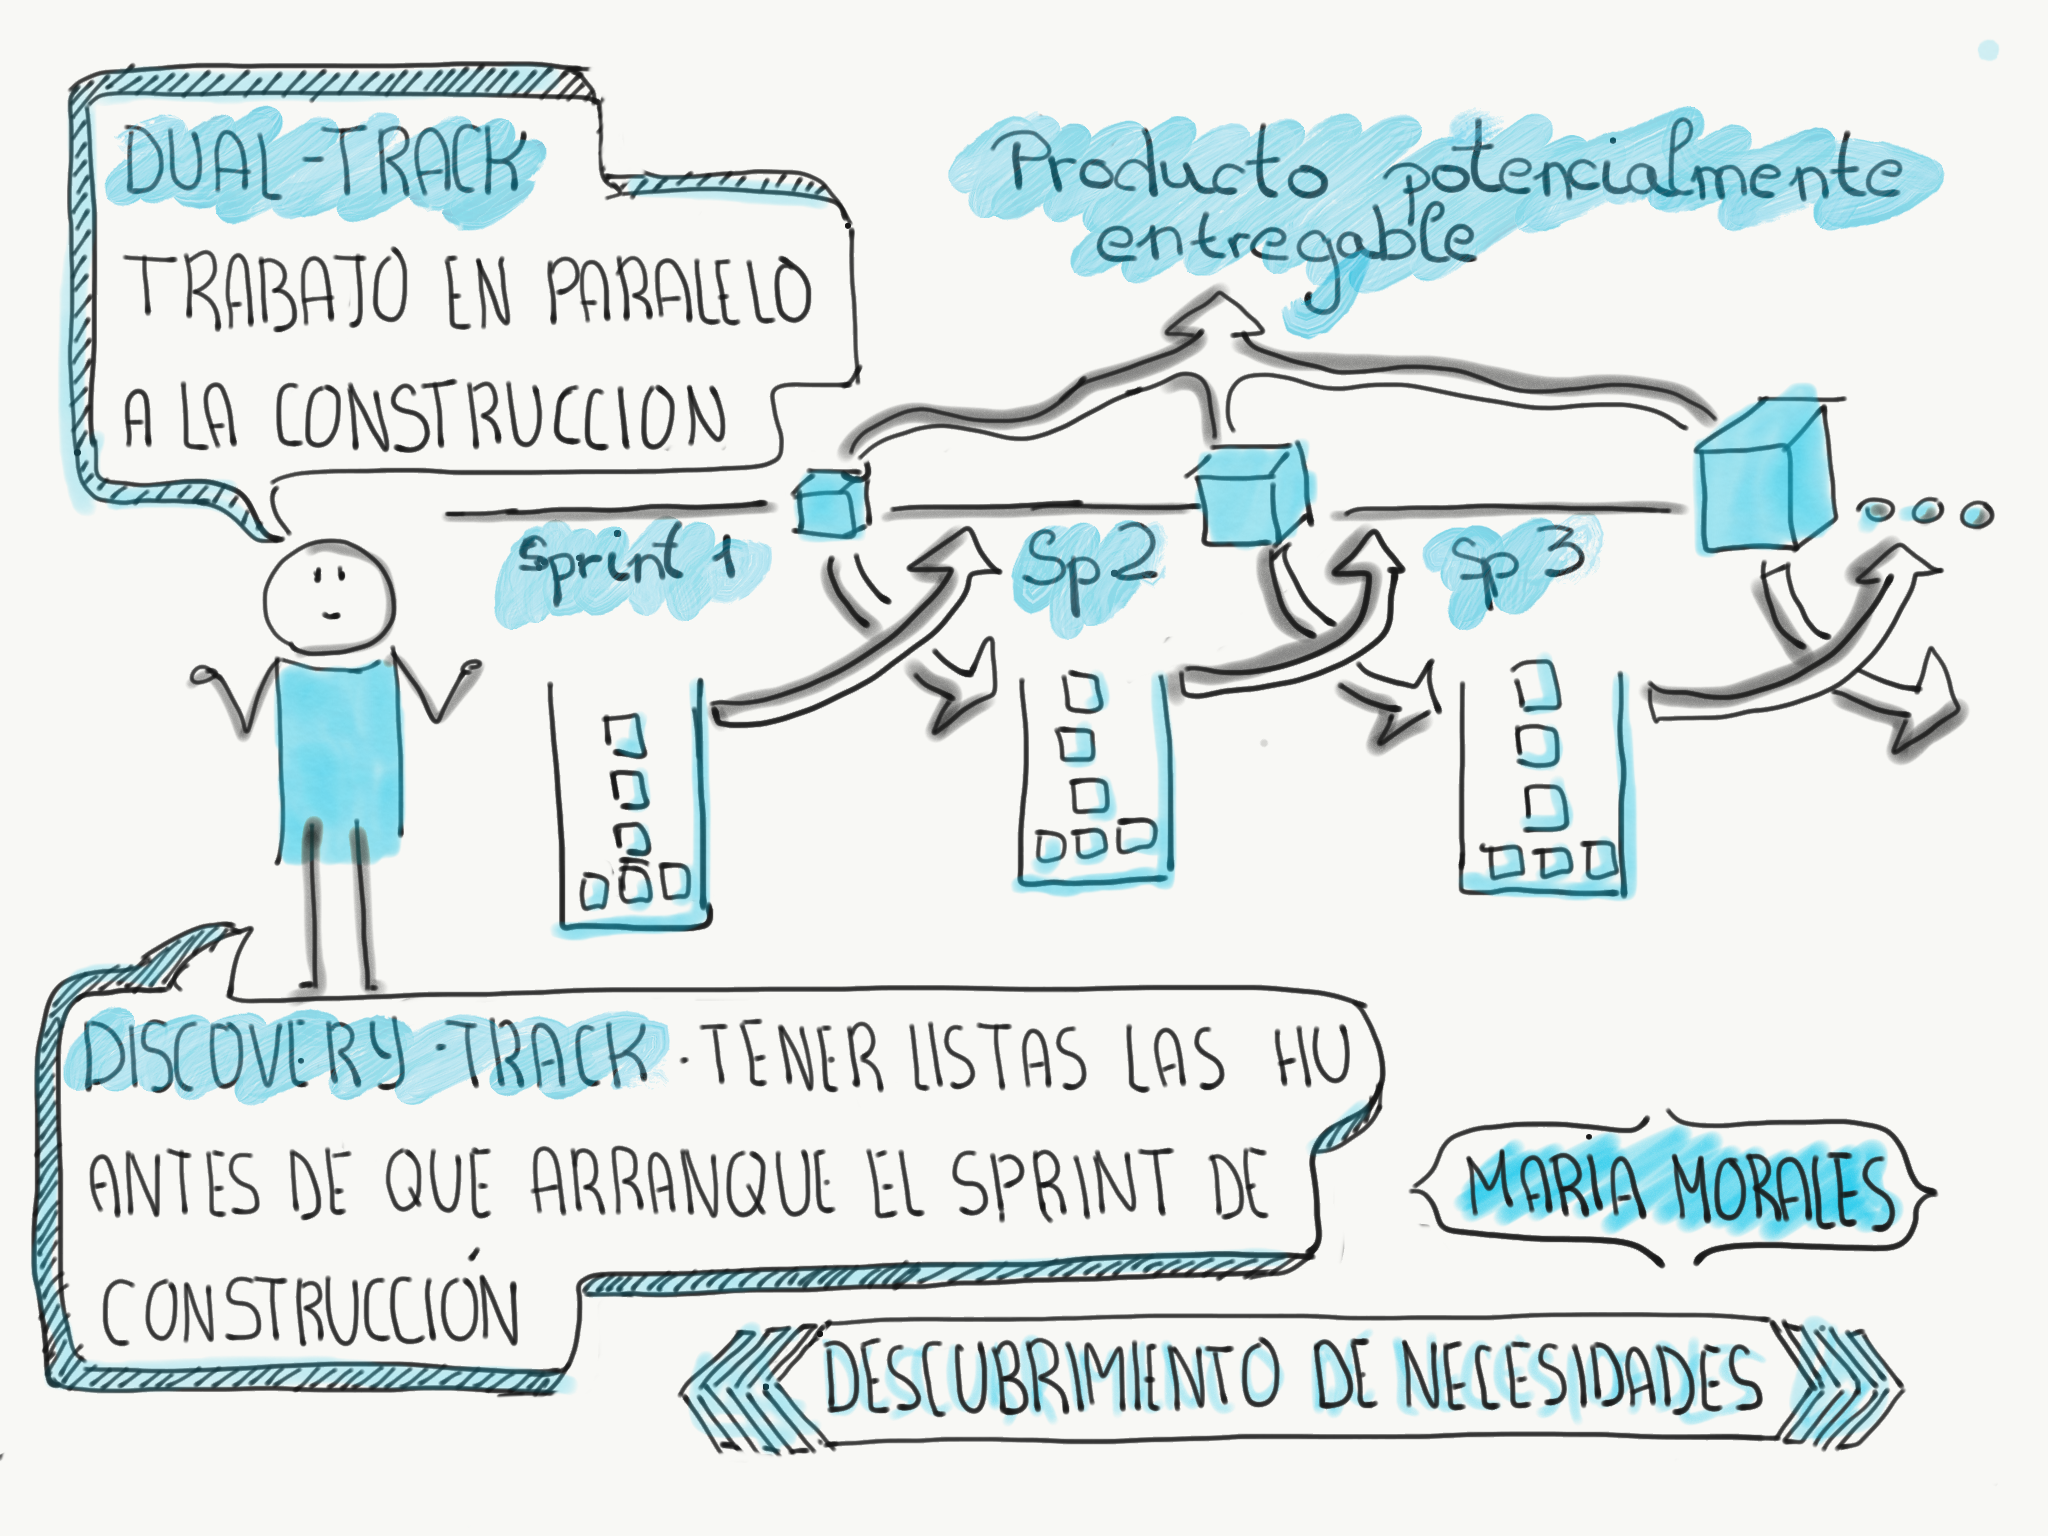 DUAL-TRACK
TRABAJO EN PARALELO
A LA CONSTRUCCION
Producto potencialmente
entregable
Sprint 1
Sp2
Sp3
DISCOVERY-TRACK. TENER LISTAS LAS HU
ANTES DE QUE ARRANQUE EL SPRINT DE
CONSTRUCCIÓN
MARIA MORALES
DESCUBRIMIENTO DE NECESIDADES